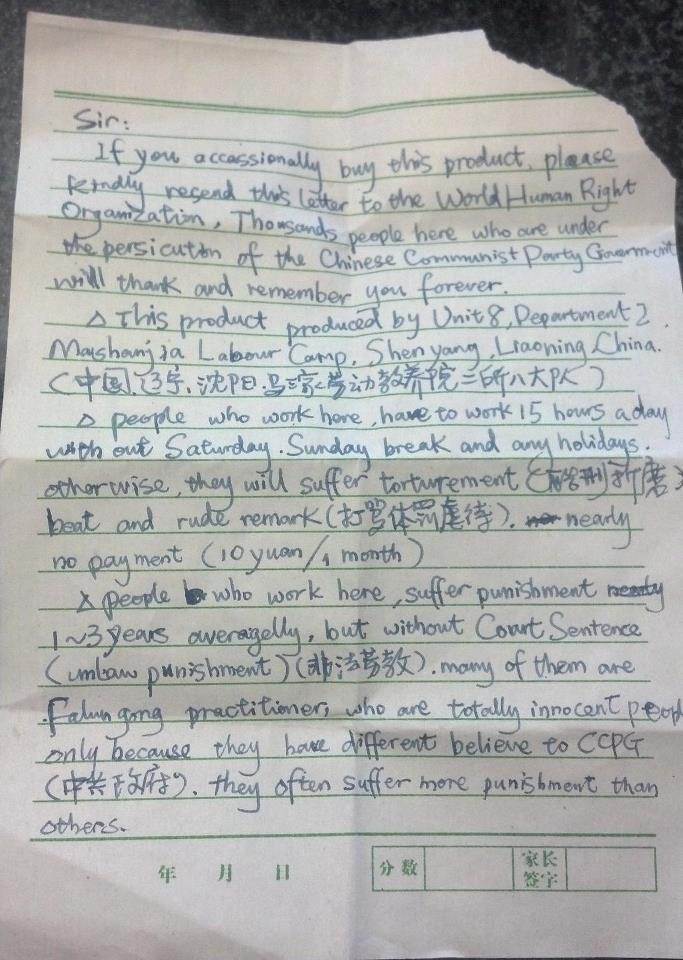 Sir:
If you occassionally buy this product, please
kindly resend this letter to the World Human Right
Organization, Thousands people here who are under
the persicution of the Chinese Communist Party Government
will thank and remember you forever.
△ This product produced by Unit 8, Department 2,
Mashanjia Labour Camp, Shenyang, Liaoning, China.
(中国.辽宁.沈阳.马三家劳动教养院二所八大队)
△ people who work here, have to work 15 hours a day
with out Saturday. Sunday break and any holidays.
otherwise, they will suffer torturement (酷刑折磨)
beat and rude remark (打骂体罚虐待). nearly
no payment (10 yuan/1 month)
△ people who work here, suffer punishment
1~3 years averagelly, but without Court Sentence
(unlaw punishment) (非法劳教). many of them are
Falun gong practitioner, who are totally innocent people
only because they have different believe to CCPG
(中共政府). they often suffer more punishment than
others.
年 月 日 分数 家长签字